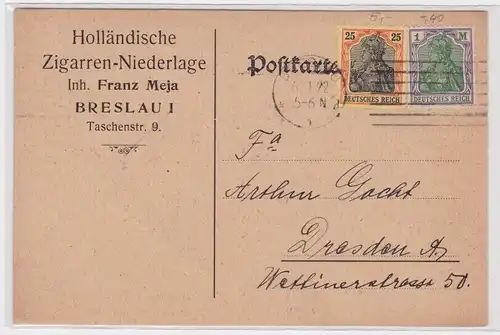 5,-
-,40
Holländische
Zigarren-Niederlage
Inh. Franz Meja
BRESLAU I
Taschenstr. 9.
Postkarte
25 25
DEUTSCHES REICH
1 M
DEUTSCHES REICH
1.22
5-6 N
Fa
Arthur Gocht
Dresden A,
Wettinerstrasse 50.